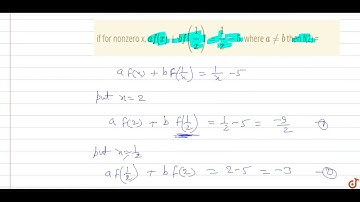 if for nonzero x, af(x) + bf(1/x) = 1/x - 5, where a ≠ b then f(2) =
a f(x) + b f(1/x) = 1/x - 5
put x = 2
a f(2) + b f(1/2) = 1/2 - 5 = -9/2 - ①
put x = 1/2
a f(1/2) + b f(2) = 2 - 5 = -3 - ②